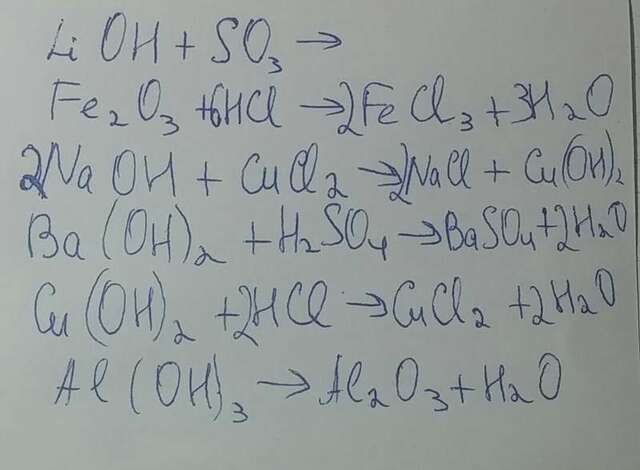 LiOH + SO₃ →
Fe₂O₃ + 6HCl → 2FeCl₃ + 3H₂O
2NaOH + CuCl₂ → 2NaCl + Cu(OH)₂
Ba(OH)₂ + H₂SO₄ → BaSO₄ + 2H₂O
Cu(OH)₂ + 2HCl → CuCl₂ + 2H₂O
Al(OH)₃ → Al₂O₃ + H₂O